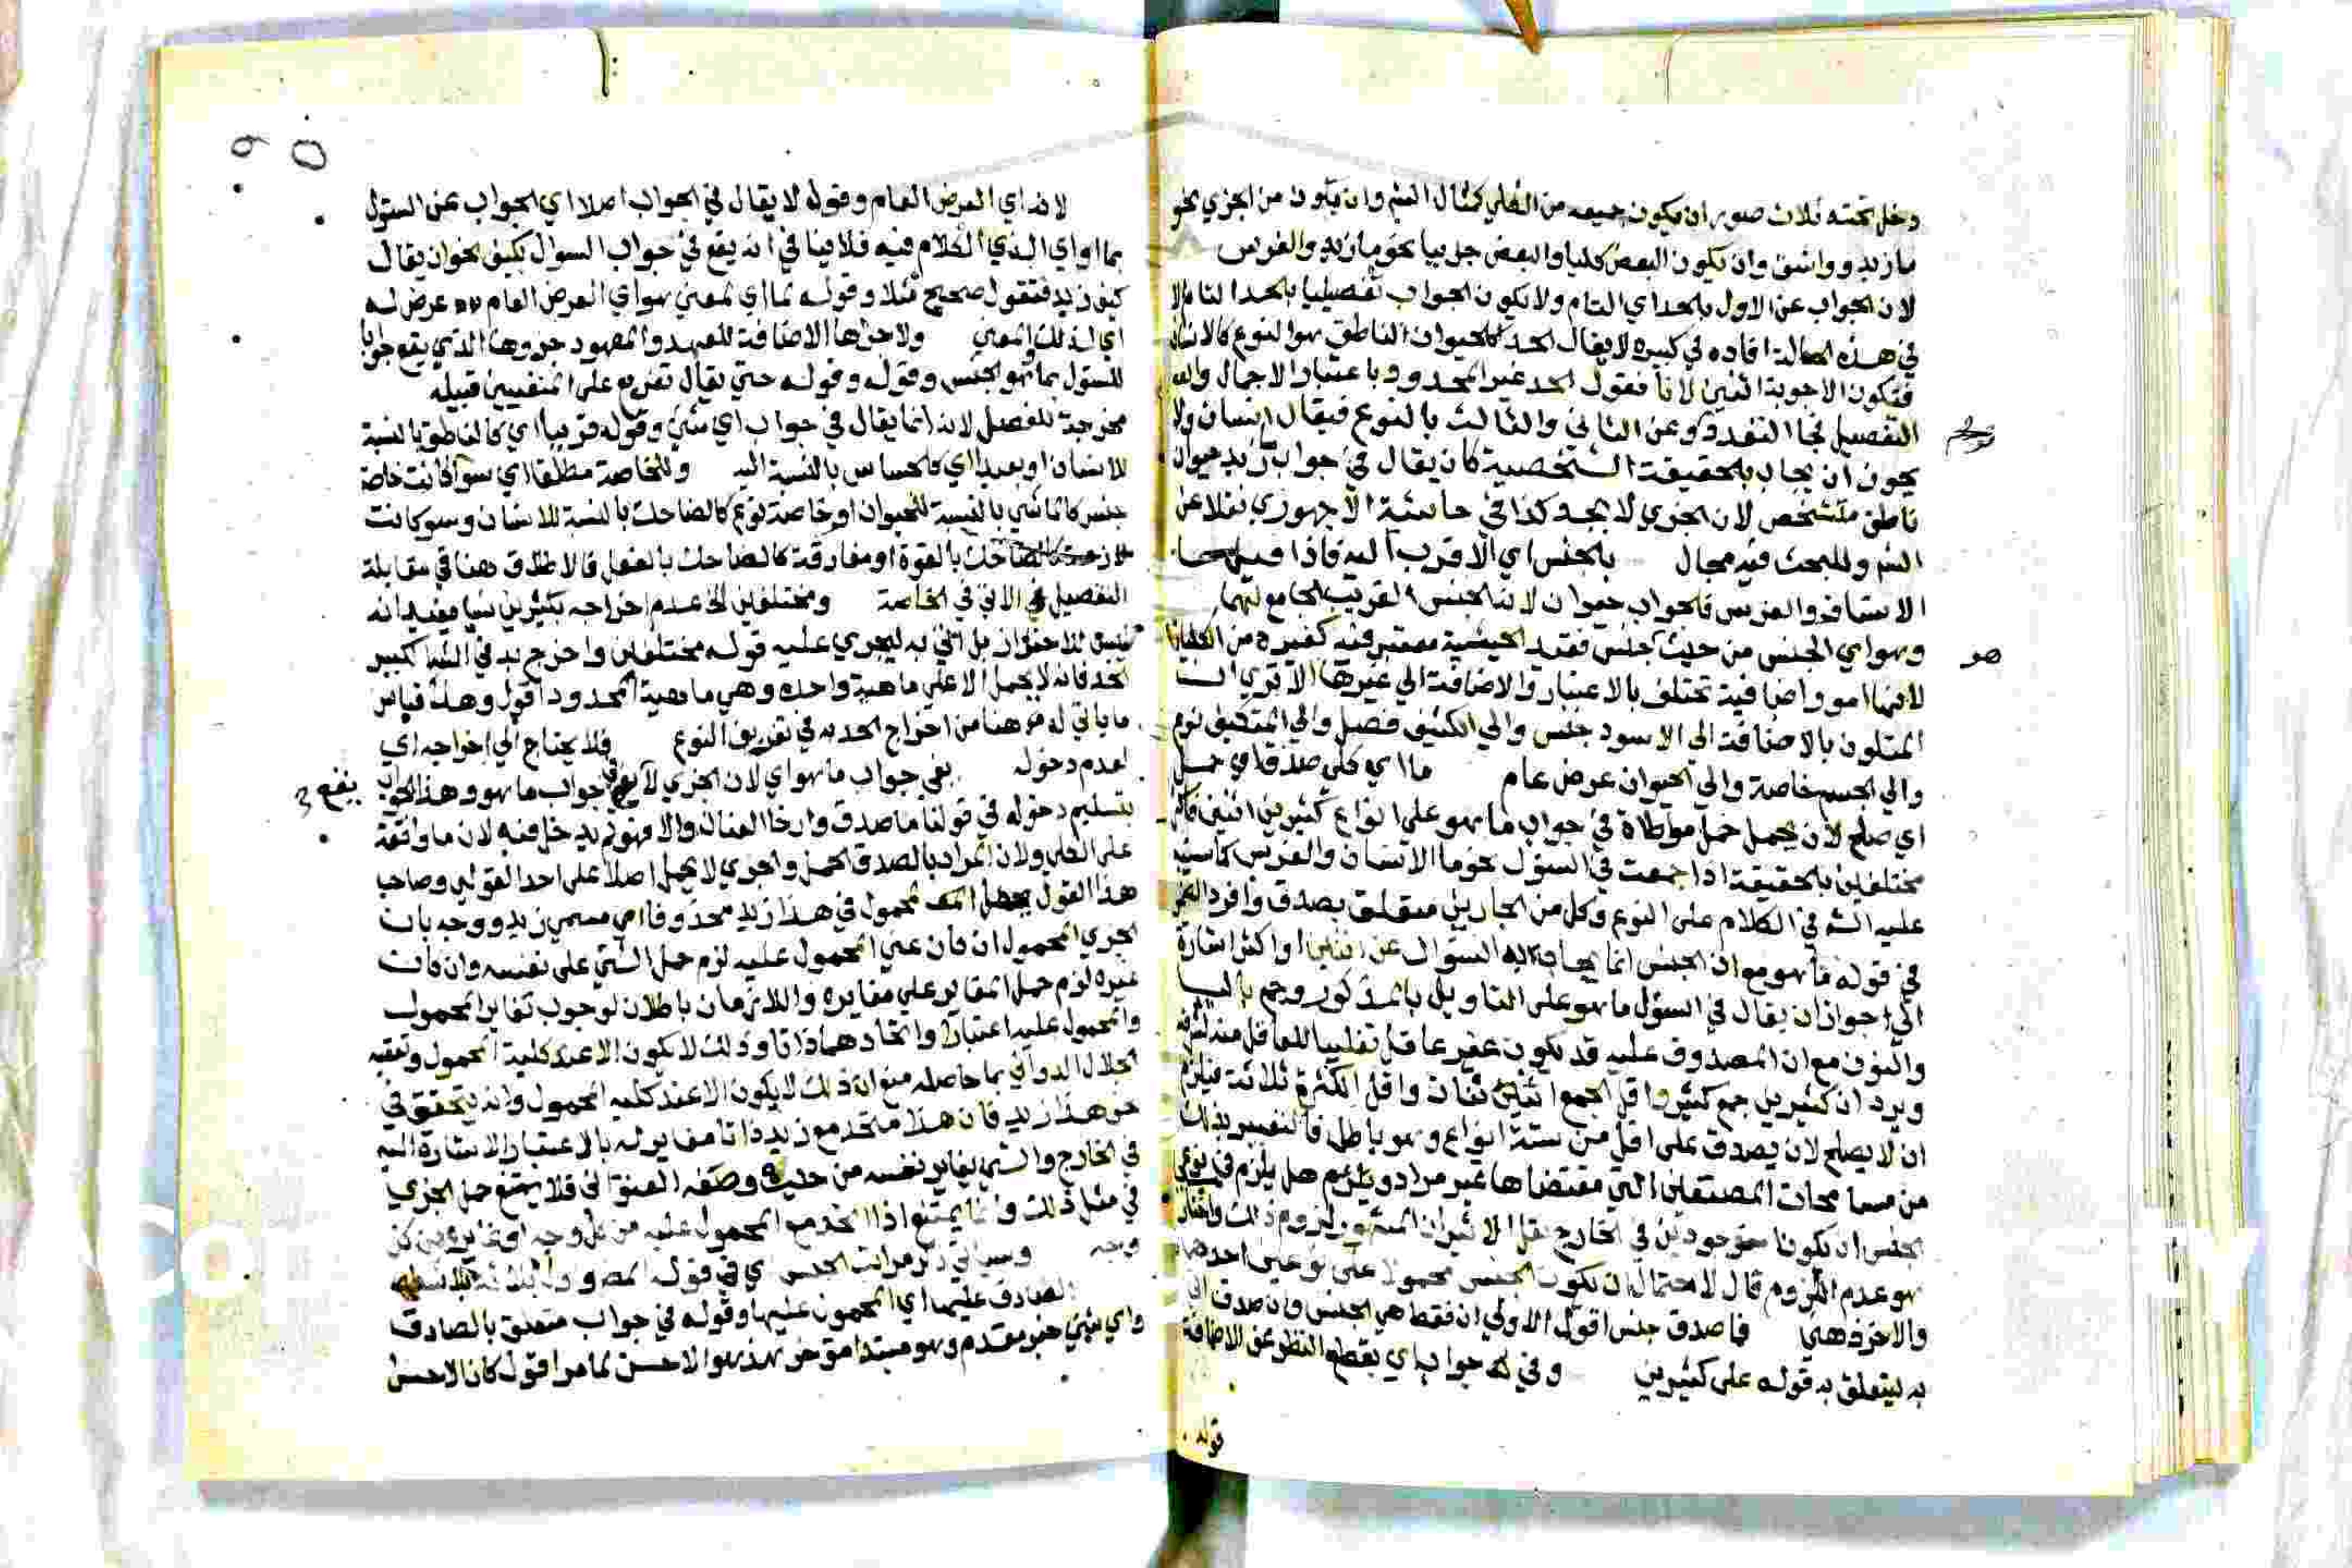 دخل تحته ثلاث صور ان يكون جميعه من الكلي كمثال الشم وان يكون من الجزي نحو
ما زيد وواشق وان يكون البعض كليا والبعض جزييا نحو ما زيد والفرس
لان الجواب عن الاول بالحد اي التام ولا يكون الجواب تفصيليا بالحد التام الا
في هذه الحالة افاده في كبيره لا يقال الحد كالحيوان الناطق هو النوع كالانسان
فتكون الاجوبة اثنين لانا نقول الحد غير المحدود باعتبار الاجمال و
التفصيل فجا التعدد وعن الثاني والثالث بالنوع فيقال انسان ولا
يجوز ان يجاب بالحقيقة الشخصية كان يقال في جواب زيد حيوان
ناطق متشخص لان الجزي لا يحد كذا في حاشية الاجهوري نقلا عن
الشم وللبحث فيه مجال بالجنس اي الاقرب اليه فاذا قيل ما
الانسان والفرس فالجواب حيوان لانه الجنس القريب الجامع لهما
وهو اي الجنس من حيث جنس فقيد الحيثية معتبر فيه كغيره من الكليات
هو
لانها امور اضافية تختلف بالاعتبار والاضافة الي غيرها الا تري ان
المتلون بالاضافة الي الاسود جنس والي الكثيف فصل والي المتكيف نوع
والي الجسم خاصة والي الحيوان عرض عام ما اي كلي صدق اي حمل
اي صلح لان يحمل حمل مواطاة في جواب ما هو علي انواع كثيرين اثنين فاكثر
مختلفين بالحقيقة اذا جمعت في السؤل نحو ما الانسان والفرس كما سينبه
عليه الشم في الكلام على النوع وكل من الجارين متعلق بصدق وافرد الضمير
في قوله ما هو مع ان الجنس انما يجاب به السؤال عن اثنين او اكثر اشارة
الي جواز ان يقال في السؤل ما هو على التاويل بالمذكور وجمع باليا
والنون مع ان المصدوق عليه قد يكون غير عاقل تغليبا للعاقل منه لشرفه
ويرد ان كثيرين جمع كثير واقل الجمع اثنان واقل الكثرة ثلاثة فيلزم
ان لا يصلح لان يصدق على اقل من ستة انواع وهو باطل فالتعبير بذلك
من مسامحات المصنفين التي مقتضاها غير مراد وهل يلزم في نوعي
الجنس ان يكونا موجودين في الخارج نقل الاثيران المشهور لزوم ذلك واختار
هو عدم اللزوم قال لاحتمال ان يكون الجنس محمولا على نوعين احدهما
والاخر ذهني فاصدق جنس اقول الاولي ان فقط هي الجنس وان صدق
به ليتعلق به قوله على كثيرين وفي جواب اي بقطع النظر عن الاضافة
قوله
لانه اي العرض العام وقوله لا يقال في الجواب اصلا اي الجواب عن السؤل
بما او اي الذي الكلام فيه فلا ينافي انه يقع في جواب السؤال بكيف نحو ان يقال
كيف زيد فتقول صحيح مثلا وقوله لما اي لمعني هو اي العرض العام عرض له
اي لذلك المعني ولاجزاها الاضافة للعهد والمعهود جزوها الذي يقع جوابا
للسؤل بما هو الجنس وقوله حتي يقال تفريع على المنفيين قبله
مخرجة للفصل لانه انما يقال في جواب اي شي وقوله قريبا اي كالناطق بالنسبة
للانسان او بعيدا اي كالحساس بالنسبة اليه وللخاصة مطلقا اي سوا كانت خاصة
جنس كالماشي بالنسبة للحيوان او خاصة نوع كالضاحك بالنسبة للانسان وسوا كانت
لازمة كالضاحك بالقوة او مفارقة كالضاحك بالفعل فالاطلاق هنا في مقابلة
التفصيل في الاتي في الخاصة ومختلفين الخ عدم اخراجه بكثيرين شيا يفيد انه
ليس للاحتراز بل اتي به ليجري عليه قوله مختلفين واخرج به في كبير
الحد فانه لا يحمل الا على ماهية واحدة وهي ماهية المحدود اقول وهذا قياس
ما ياتي له من اخراج الحد به في تعريف النوع فلا يحتاج الي اخراجه اي
لعدم دخوله بفي جواب ما هو اي لان الجزي لا يقع في جواب ما هو وهذا الجواب
يقع
بتسليم دخوله في قولنا ما صدق وارخا العنان والا فهو لم يدخل فيه لان ما واقعة
على الكلي ولان المراد بالصدق الحمل والجزي لا يحمل اصلا على احد القولين وصاحب
هذا القول يجعل المحمول في هذا زيد محذوفا اي مسمي زيد ووجه بان
الجزي المحمول ان كان عين المحمول عليه لزم حمل الشي على نفسه وان كان
غيره لزم حمل المغاير على مغايره واللازمان باطلان لوجوب تغاير المحمول
والمحمول عليه اعتبارا واتحادهما ذاتا وذلك لا يكون الا عند كلية المحمول وتعقبه
الجلال الدواني بما حاصله منع ان ذلك لا يكون الا عند كلية المحمول وانه يتحقق في
نحو هذا زيد فان هذا متحد مع زيد ذاتا مغاير له بالاعتبار الاشارة اليه
في الخارج والشي يغاير نفسه من حيث وصفه العنواني فلا يمتنع حمل الجزي
في مثل ذلك وانما يمتنع اذا اتحد مع المحمول عليه من كل وجه او تغايرا من كل
وجه وسياتي ذكر مراتب الجنس اي في قوله المص
الصادق عليها اي المحمول عليها وقوله في جواب متعلق بالصادق
واي شي خبر مقدم وهو مبتدا مؤخر هذا هو الاحسن لما مر اقول كان الاحسن